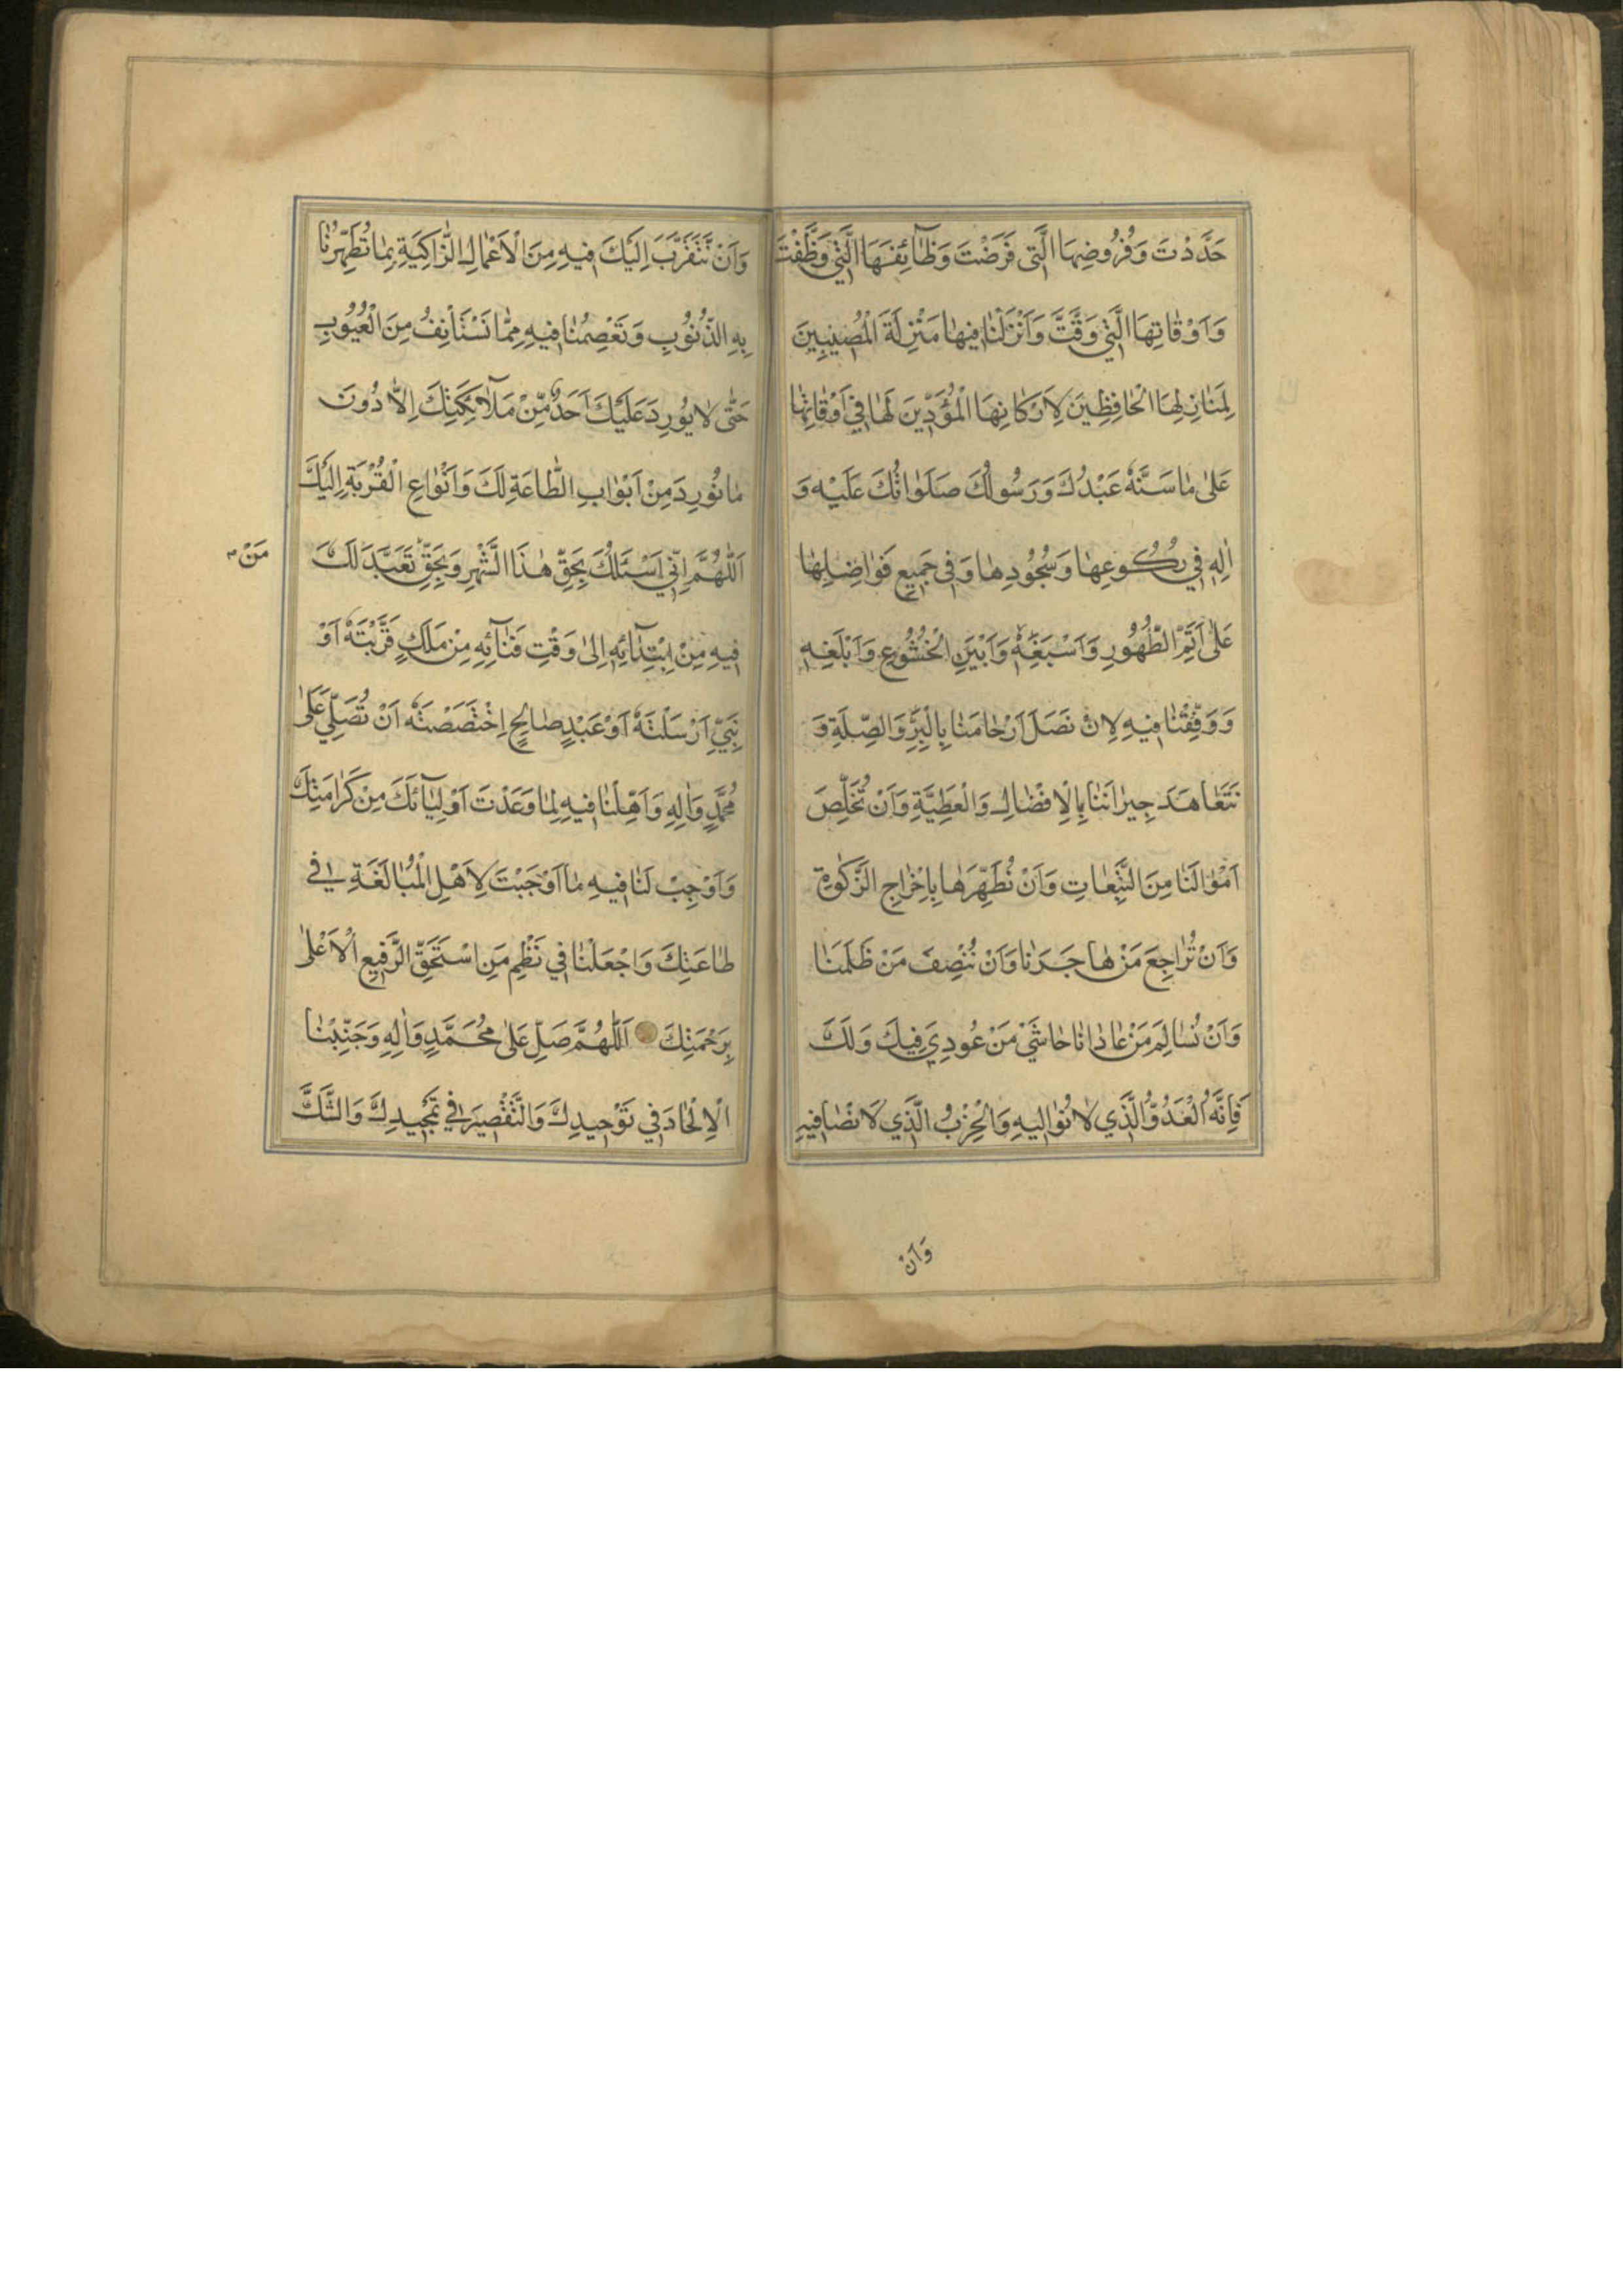 حَدَّدْتَ وَفُرُوضِهَا الَّتِي فَرَضْتَ وَظَآئِفَهَا الَّتِي وَظَّفْتَ
وَاَوْقاتِهَا الَّتِي وَقَّتَّ وَاَنْزِلْنا فيها مَنْزِلَةَ الْمُصيبينَ
لِمَنازِلِهَا الْحافِظينَ لِاَرْكانِهَا الْمُؤَدّينَ لَها في اَوْقاتِها
عَلى ما سَنَّهُ عَبْدُكَ وَرَسُولُكَ صَلَواتُكَ عَلَيْهِ وَ
الِهِ في رُكُوعِها وَسُجُودِها وَفي جَميعِ فَواضِلِها
عَلى اَتَمِّ الطَّهُورِ وَاَسْبَغِهِ وَاَبْيَنِ الْخُشُوعِ وَاَبْلَغِهِ
وَوَفِّقْنا فيهِ لِاَنْ نَصِلَ اَرْحامَنا بِالْبِرِّ وَالصِّلَةِ وَ
نَتَعاهَدَ جيرانَنا بِالْاِفْضالِ وَالْعَطِيَّةِ وَاَنْ نُخَلِّصَ
اَمْوالَنا مِنَ التَّبِعاتِ وَاَنْ نُطَهِّرَها بِاِخْراجِ الزَّكوةِ
وَاَنْ نُراجِعَ مَنْ هاجَرَنا وَاَنْ نُنْصِفَ مَنْ ظَلَمَنا
وَاَنْ نُسالِمَ مَنْ عادانا حاشَى مَنْ عُودِيَ فيكَ وَلَكَ
فَاِنَّهُ الْعَدُوُّ الَّذي لا نُواليهِ وَالْحِزْبُ الَّذي لا نُصافيهِ
وَاَنْ
وَاَنْ نَتَقَرَّبَ اِلَيْكَ فيهِ مِنَ الْاَعْمالِ الزّاكِيَةِ بِما تُطَهِّرُنا
بِهِ الذُّنُوبِ وَتَعْصِمُنا فيهِ مِمّا نَسْتَأْنِفُ مِنَ الْعُيُوبِ
حَتّى لا يُورِدَ عَلَيْكَ اَحَدٌ مِنْ مَلآئِكَتِكَ اِلّا دُونَ
ما نُورِدَ مِنْ اَبْوابِ الطّاعَةِ لَكَ وَاَنْواعِ الْقُرْبَةِ اِلَيْكَ
اَللّهُمَّ اِنّي اَسْئَلُكَ بِحَقِّ هذَا الشَّهْرِ وَبِحَقِّ تَعَبَّدَ لَكَ
مَنْ
فيهِ مِنْ اِبْتِدآئِهِ اِلى وَقْتِ فَنآئِهِ مِنْ مَلَكٍ قَرَّبْتَهُ اَوْ
نَبِيٍّ اَرْسَلْتَهُ اَوْ عَبْدٍ صالِحٍ اِخْتَصَصْتَهُ اَنْ تُصَلِّيَ عَلى
مُحَمَّدٍ وَالِهِ وَاَهِّلْنا فيهِ لِما وَعَدْتَ اَوْلِيآئَكَ مِنْ كَرامَتِكَ
وَاَوْجِبْ لَنا فيهِ ما اَوْجَبْتَ لِاَهْلِ الْمُبالَغَةِ في
طاعَتِكَ وَاجْعَلْنا في نَظْمِ مَنِ اسْتَحَقَّ الرَّفيعِ الْاَعْلى
بِرَحْمَتِكَ اَللّهُمَّ صَلِّ عَلى مُحَمَّدٍ وَالِهِ وَجَنِّبْنَا
الْاِلْحادَ في تَوْحيدِكَ وَالتَّقْصيرَ في تَمْجيدِكَ وَالشَّكَّ